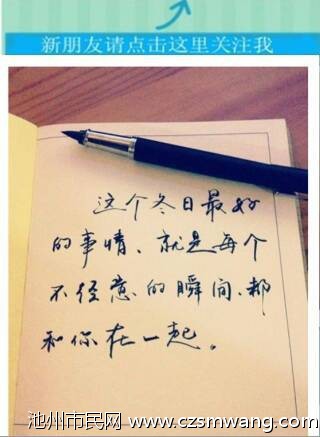 新朋友请点击这里关注我
这个冬日最好
的事情、就是每个
不经意的瞬间、都
和你在一起。
池州市民网 www.czsmwang.com